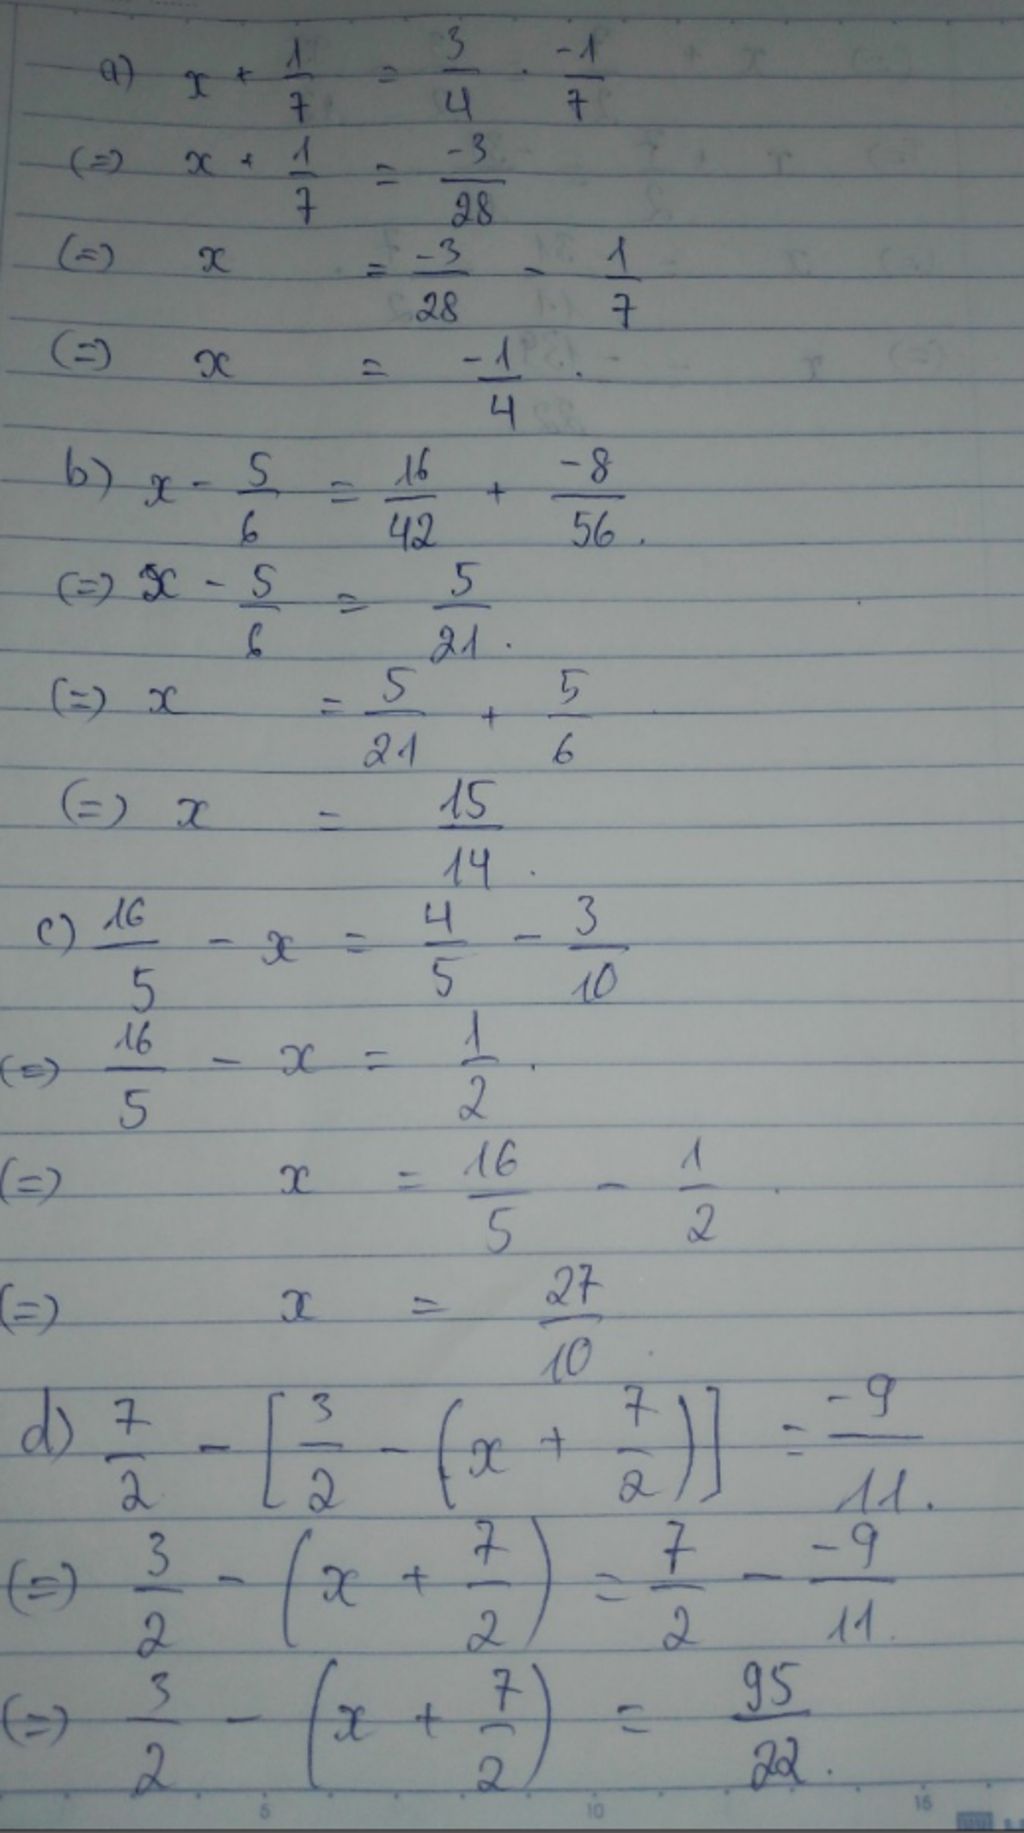 a) x + 1/7 = 3/4 . -1/7
(=) x + 1/7 = -3/28
(=) x = -3/28 - 1/7
(=) x = -1/4 .
b) x - 5/6 = 16/42 + -8/56 .
(=) x - 5/6 = 5/21 .
(=) x = 5/21 + 5/6
(=) x = 15/14 .
c) 16/5 - x = 4/5 - 3/10
(=) 16/5 - x = 1/2 .
(=) x = 16/5 - 1/2 .
(=) x = 27/10 .
d) 7/2 - [3/2 - (x + 7/2)] = -9/11 .
(=) 3/2 - (x + 7/2) = 7/2 - -9/11 .
(=) 3/2 - (x + 7/2) = 95/22 .
5 10 15